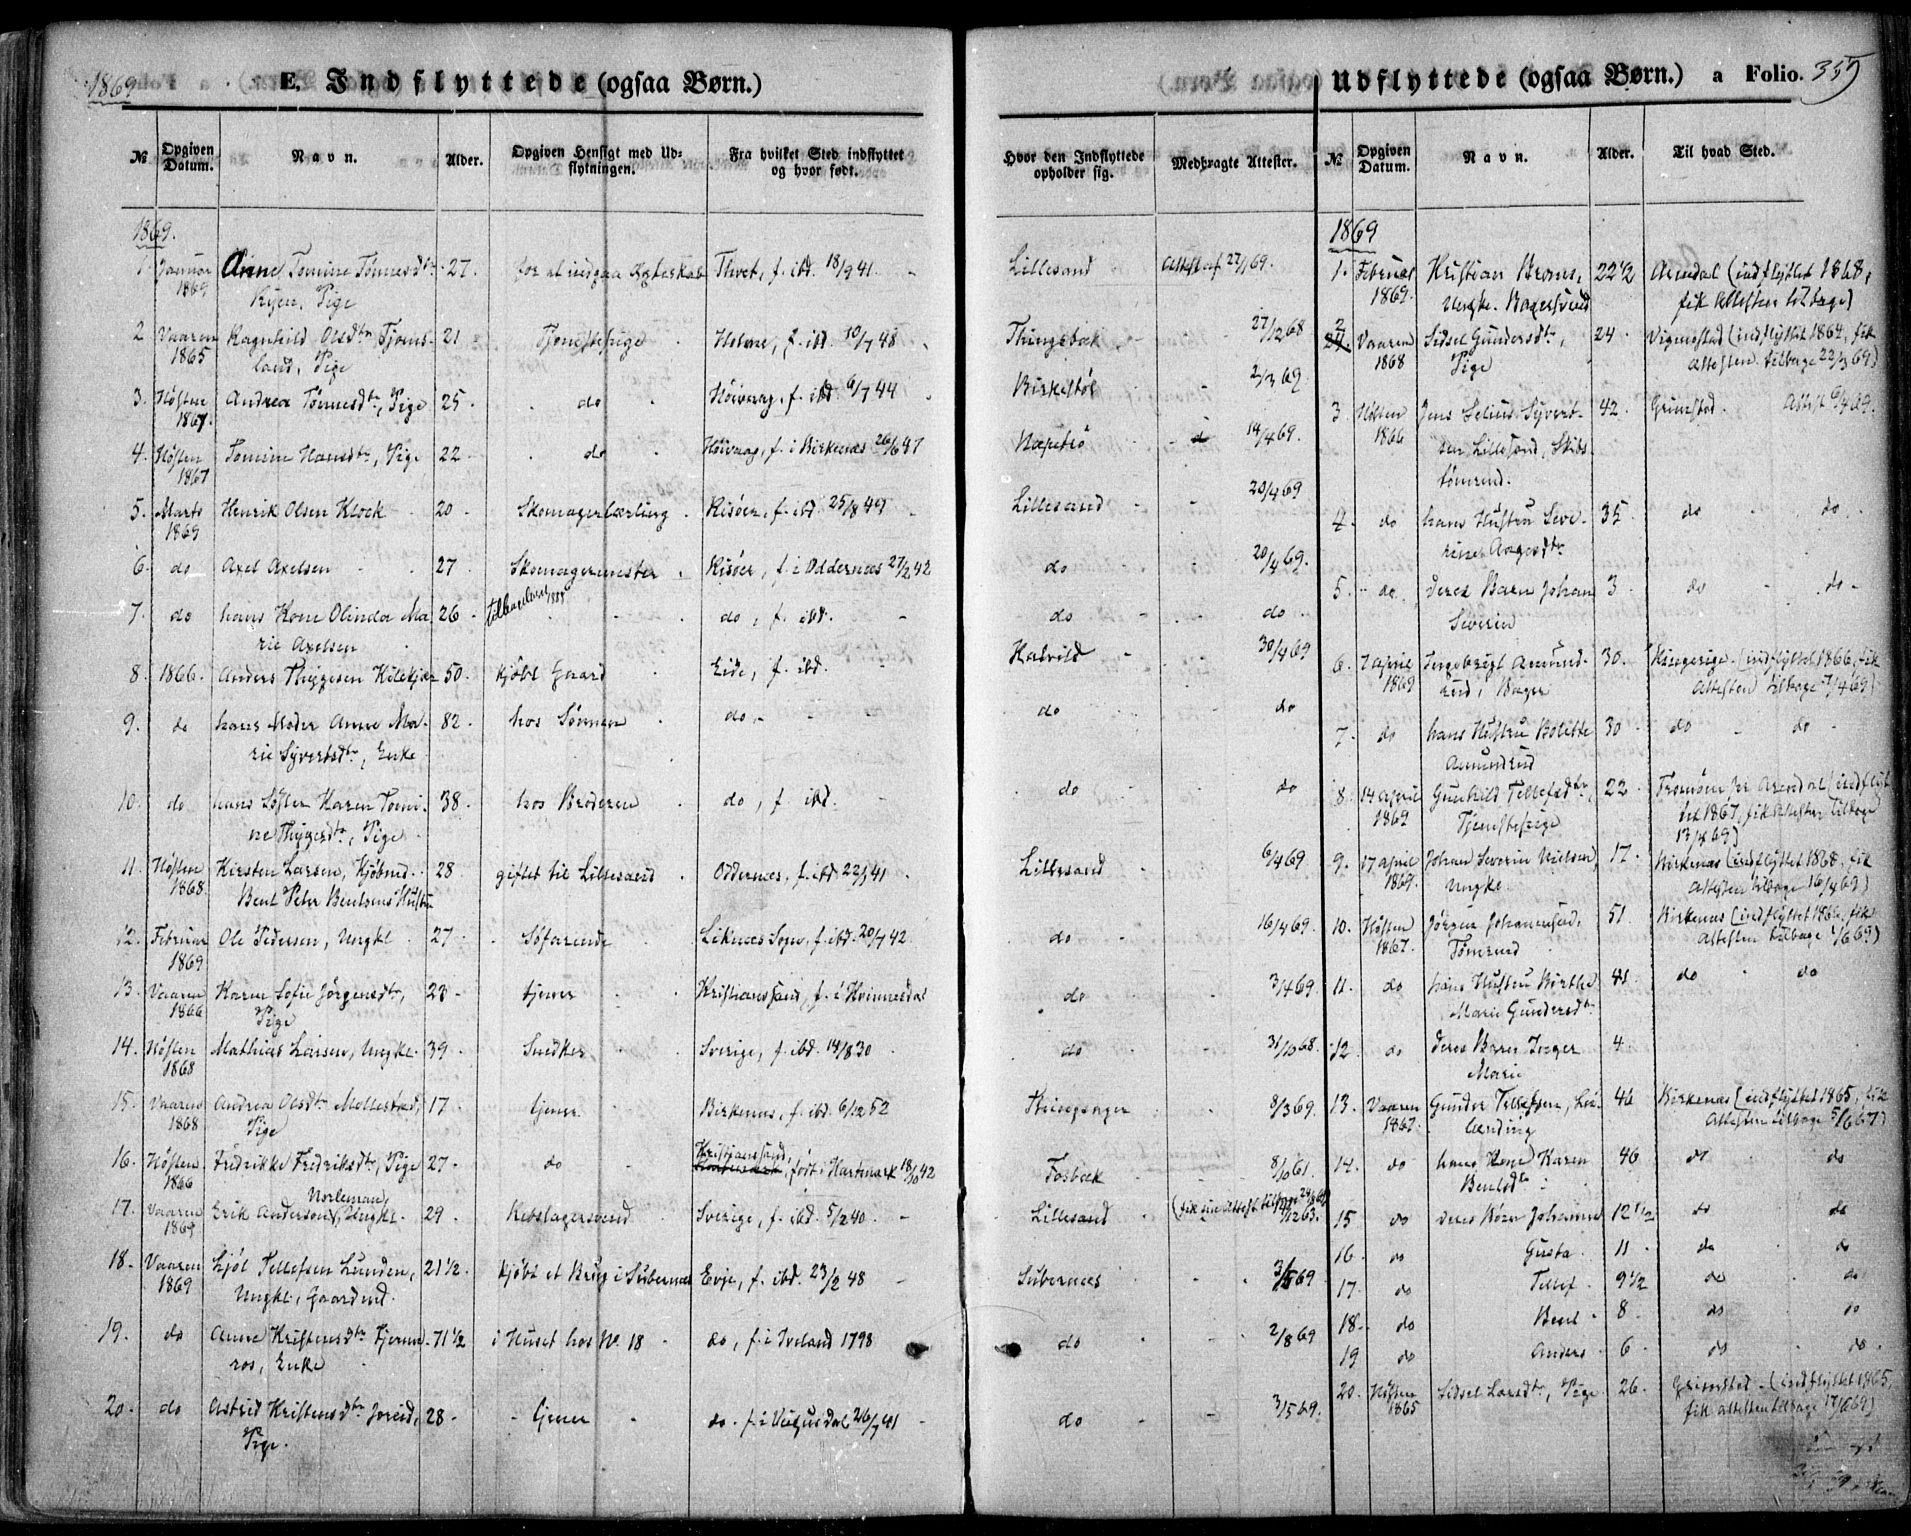 1869
E. Indflyttede (ogsaa Børn.)
№
Opgiven Datum.
Navn.
Alder.
Opgiven Hensigt med Udflytningen.
Fra hvilket Sted indflyttet og hvor født.
Hvor den Indflyttede opholder sig.
Medbragte Attester.
1869.
1. Januar 1869 Anne Tomine Tønnesdtr 27. for at indgaa Ægteskab Thvet, f. ibd. 18/9 41 - Lillesand Attest af 27/1 69.
Ryen, Pige
2 Vaaren 1865 Ragnhild Olsdtr Fjerms- 21 Tjenestepige Holme, f. ibd. 10/7 48 Thingsbæk 27/12 68
land, Pige
3. Høsten 1867. Andrea Tønnesdtr, Pige 25 do Höivaag, f. ibd 6/7 44 Birkestöl 2/3 69
4. Høsten 1867 Tomine Hansdtr, Pige 22 do Höivaag, f. i Birkenæs 26/6 47 14/4 69.
5. Marts 1869 Henrik Olsen Klock 20 Skomagerlærling Risöer, f. ibd 25/8 49 Lillesand 20/4 69
6. do Axel Axelsen 27 Skomagermester Risöer, f. i Oddernæs 27/2 42 do 20/4 69.
7. do hans Kone Olinda Ma- 26 do, f. ibd. do do
rie Axelsen
8. 1866. Anders Thygesen Kilekjær 50 kjöbt Gaard Eide, f. ibd. Kalvild 30/4 69
9. do hans Moder Anne Ma- 82 hos Sønnen do, do do
rie Syvertsdtr, Enke
10. do hans Søster Karen Tomi- 38. hos Broderen do, f ibd. do do
ne Thygesdtr, Pige
11. Høsten 1868. Kirsten Larsen, Kjöbmd. 28 giftet til Lillesand Oddernæs, f. ibd 22/5 41 Lillesand 6/4 69
Bent Peter Bentsens Hustru
12. Februar 1869 Ole Pedersen, Ungk. 27 Søfarende Liknæs Sogn, f. ibd. 20/7 42 do 16/4 69
13. Vaaren 1866 Karen Sofie Jørgensdtr, 28 tjener Kristianssand, f. i Kvinnesdal do 3/4 69
Pige
14. Høsten 1868 Mathias Larsen, Ungk. 39 Snedker Sverige, f. ibd. 14/8 30 do 31/10 68
15. Vaaren 1868 Andrea Olsdtr Mollestad, 17 tjener Birkenæs, f. ibd. 6/12 52 8/3 69
Pige
16. Høsten 1866 Fredrikke Fredriksdtr, Pige 27. do Kristianssand, født i Hartmark 18/10 42 Fosbæk 8/10 61
Norleman
17. Vaaren 1869 Erik Anderson, Ungk. 29 Rebslagersvend Sverige, f. ibd. 5/2 40 Lillesand /12 63.
18. Vaaren 1869 Ljöl Tellefsen Lunden, 21 1/2 kjöbt et Brug i Subernæs Evje, f. ibd. 23/2 48 Subernæs 3/5 69
Ungk., Gaardmd.
19. do Anne Kristensdtr Fjerm- 71 1/2 i Huset hos No. 18 do, f. i Iveland 1798 do 2/8 69
ros, Enke
20. do Astrid Kristensdtr Joreid, 28 tjener do. f. i Vegusdal 26/7 41 do 3/5 69.
Pige.
Udflyttede (ogsaa Børn.) a Folio. 355
№
Opgiven Datum.
Navn.
Alder.
Til hvad Sted.
1869
1. Februar 1869. Kristian Brons, 22 1/2 Arendal (indflyttet 1868,
Ungk. Bagersvend fik Attesten tilbage)
2 Vaaren 1868 Sidsel Gundersdtr, 24 Vigmostad (indflyttet 1864, fik
Pige Attesten tilbage 22/3 69)
3. Høsten 1866 Jens Selius Syvert- 42. Grimstad. Attest 6/4 69.
sen Lillesand, Skibs-
tømrmd.
4. do hans Hustru Seve- 35 do do
rine Aagesdtr
5. do deres Barn Johan 3 do do
Severin
6. 7 april 1869 Ingebrigt Amund- 30. Ringerige. (indflyttet 1866, fik
rud, Bager Attesten tilbage 7/4 69)
7 do hans Hustru Bolette 30 do do
Amundrud
8. 14 april 1869 Gunhild Tellefsdtr, 22 Tromøen pr Arendal (indflyt-
Tjenestepige tet 1867, fik Attesten tilbage
13/4 69)
9. 17 april 1869. Johan Severin Nielsen, 17. Birkenæs (indflyttet 1868, fik
Ungk. Attesten tilbage 16/4 69)
10. Høsten 1867. Jørgen Johannesen, 51 Birkenæs (indflyttet 1866, fik
Tømrmd Attesten tilbage 1/6 69)
11. do hans Hustru Birthe 41 do do
Marie Gundersdtr
12. do deres Barn Inger 4
Marie
13. Vaaren 1867. Gunder Tellefsen, 46 Birkenæs (indflyttet 1865, fik
Attesten tilbage 5/6 67)
14. do hans Kone Karen 46 do do
Bentsdtr
15 do deres Börn Johanne 12 1/2 do do
16. do Gusta 11 do do
17 do Tellef 9 1/2 do do
18. do Bent 8 do do
19 do Anders 6 do do
20. Høsten 1865 Sidsel Larsdtr, Pige 26. Grimstad (indflyttet 1865,
fik attesten tilbage 17/6 69)